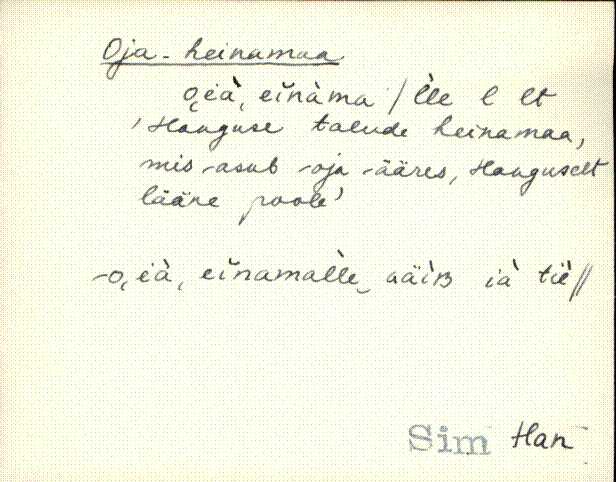 Oja-heinamaa
o̬i̯à, eìnàma / l̀le l lt
'Hanguse talude heinamaa,
mis asub oja ääres, Hanguselt
lääne poole'
o̬i̯à, eìnamal̀le
ià tiè //
Sim Han